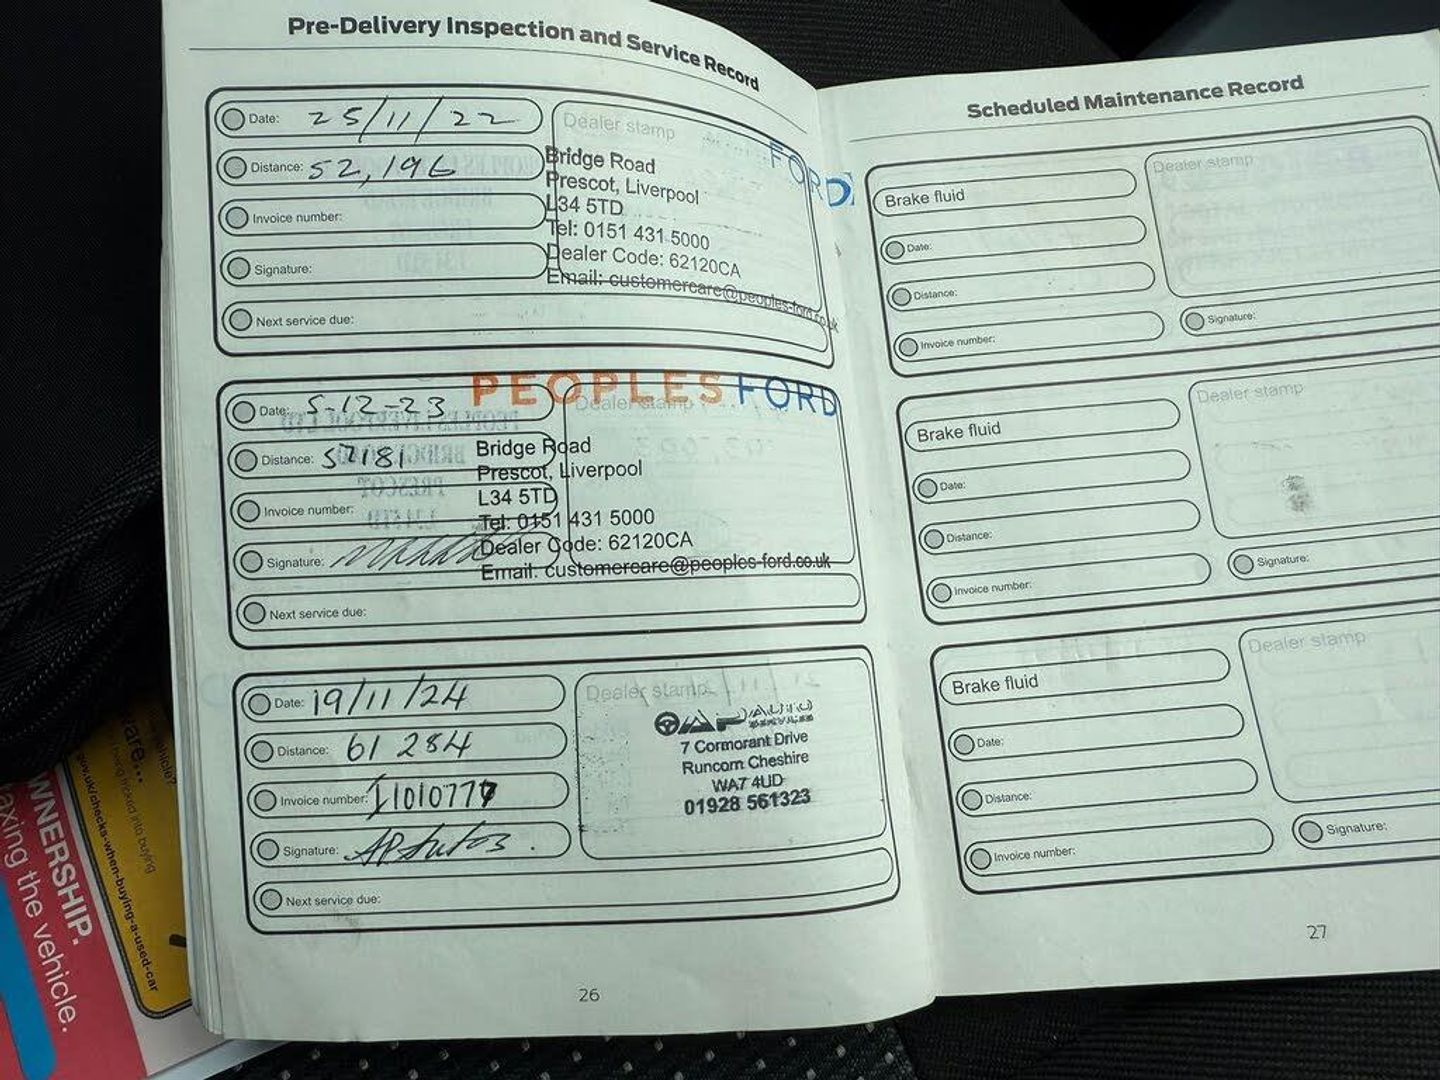 Pre-Delivery Inspection and Service Record
Date: 25/11/22
Distance: 52,196
Invoice number:
Signature:
Next service due:
Dealer stamp
FORD
Bridge Road
Prescot, Liverpool
L34 5TD
Tel: 0151 431 5000
Dealer Code: 62120CA
Email: customercare@peoples-ford.co.uk
Date: 5-12-23
Distance: 57181
Invoice number:
Signature:
Next service due:
Dealer stamp
PEOPLES FORD
Bridge Road
Prescot, Liverpool
L34 5TD
Tel: 0151 431 5000
Dealer Code: 62120CA
Email: customercare@peoples-ford.co.uk
Date: 19/11/24
Distance: 61 284
Invoice number:
Signature: AP Autos.
Next service due:
Dealer stamp
AP AUTO
SERVICES
7 Cormorant Drive
Runcorn Cheshire
WA7 4UD
01928 561323
26
Scheduled Maintenance Record
Brake fluid
Date:
Distance:
Invoice number:
Dealer stamp
Signature:
Brake fluid
Date:
Distance:
Invoice number:
Dealer stamp
Signature:
Brake fluid
Date:
Distance:
Invoice number:
Dealer stamp
Signature:
27
WNERSHIP.
axing the vehicle.
are...
vehicle?
being tricked into buying
gov.uk/checks-when-buying-a-used-car